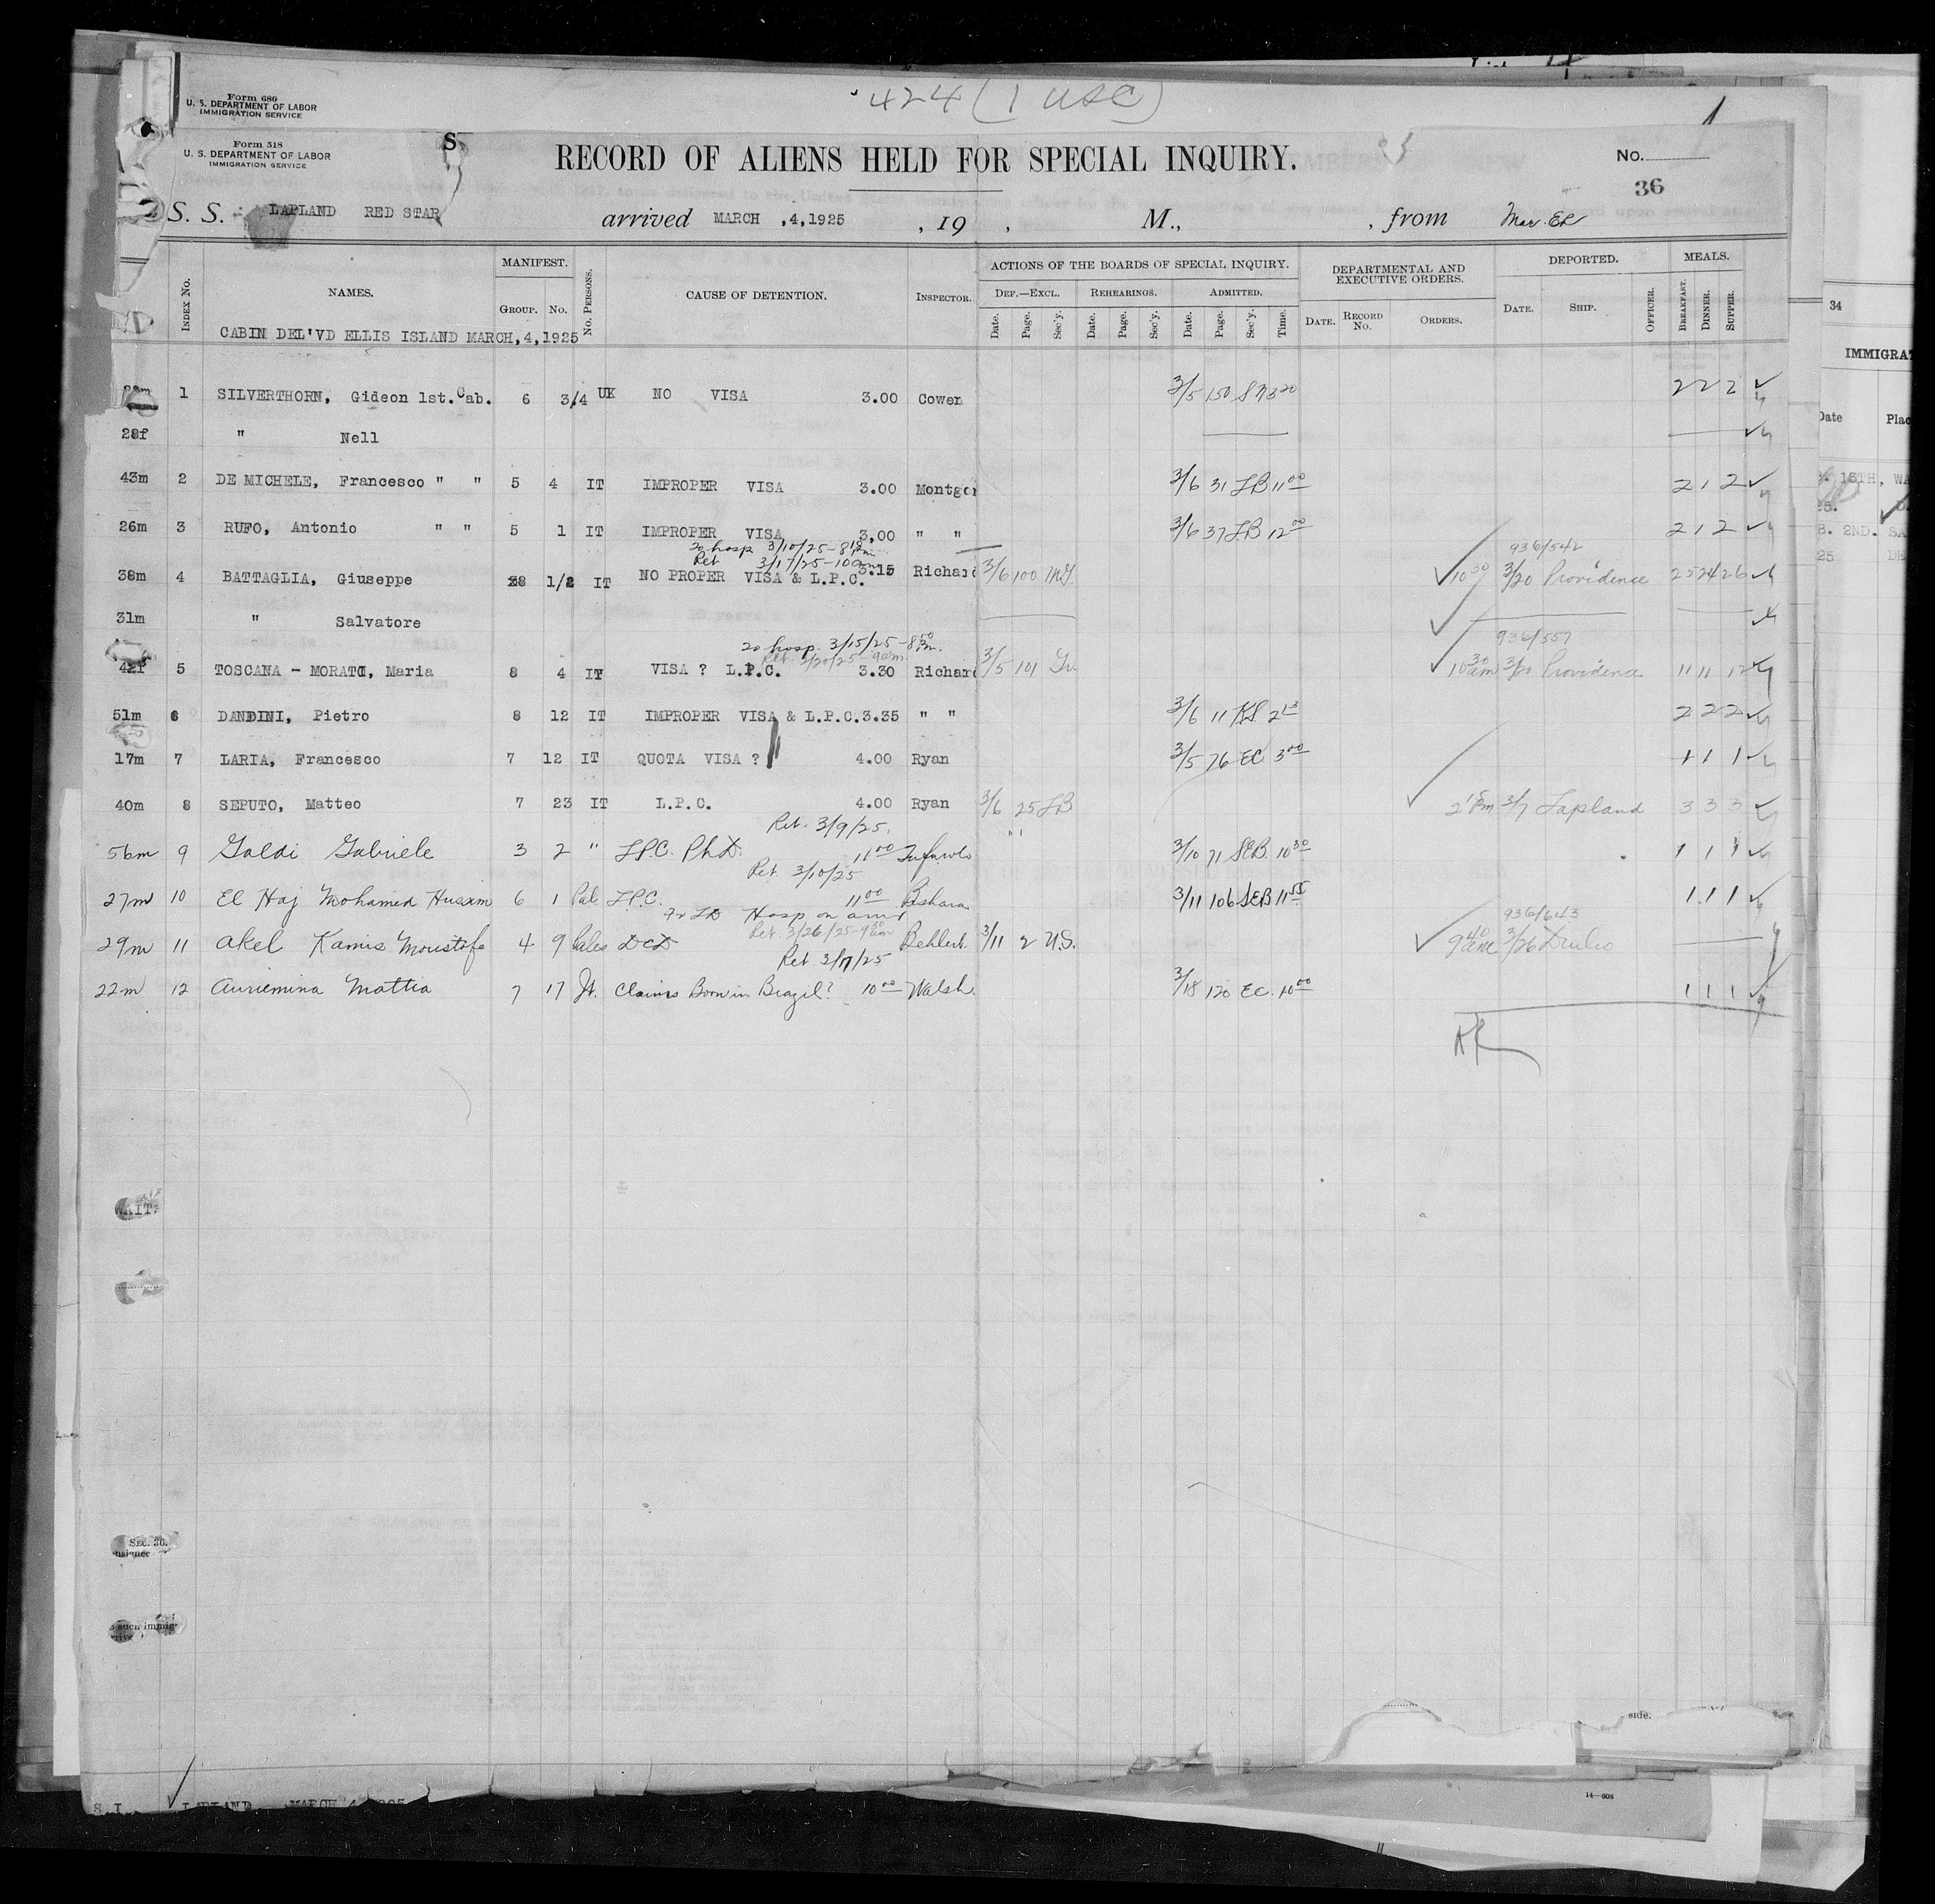 424 (1 USC)
1
Form 680
U. S. DEPARTMENT OF LABOR
IMMIGRATION SERVICE
Form 518
U. S. DEPARTMENT OF LABOR
IMMIGRATION SERVICE
S
RECORD OF ALIENS HELD FOR SPECIAL INQUIRY.
No.
36
S. S. LAPLAND RED STAR arrived MARCH ,4,1925 , 19 , M., , from
MANIFEST. ACTIONS OF THE BOARDS OF SPECIAL INQUIRY. DEPARTMENTAL AND EXECUTIVE ORDERS. DEPORTED. MEALS.
Index No. NAMES. GROUP. No. No. PERSONS. CAUSE OF DETENTION. INSPECTOR. DEF.—EXCL. REHEARINGS. ADMITTED.
Date. Page. Sec'y. Date. Page. Sec'y. Date. Page. Sec'y. Time. DATE. RECORD No. ORDERS. DATE. SHIP. OFFICER. BREAKFAST. DINNER. SUPPER.
CABIN DEL'VD ELLIS ISLAND MARCH,4,1925
1 SILVERTHORN, Gideon 1st. Cab. 6 3/4 UK NO VISA 3.00 Cowen 3/5 150 3 20 2 2 2
28f " Nell
43m 2 DE MICHELE, Francesco " " 5 4 IT IMPROPER VISA 3.00 Montgom 3/6 31 LB 11 00 2 1 2
26m 3 RUFO, Antonio " " 5 1 IT IMPROPER VISA 3.00 " " 3/6 37 LB 12 00 2 1 2
to hosp 3/10/25 - 8 pm
Ret 3/17/25 - 10 am
936/542
38m 4 BATTAGLIA, Giuseppe 8 1/2 IT NO PROPER VISA & L.P.C. 3.15 Richard 3/6 100 10 30 3/20 Providence 25 24 26
31m " Salvatore
to hosp. 3/15/25 - 8 50 Pm.
Ret 3/20/25 - 9 am
936/557
42f 5 TOSCANA - MORATO, Maria 8 4 IT VISA ? L.P.C. 3.30 Richard 3/5 101 10 30 am 3/20 Providence 11 11 12
51m 6 DANDINI, Pietro 8 12 IT IMPROPER VISA & L.P.C. 3.35 " " 3/6 11 2 2 2
17m 7 LARIA, Francesco 7 12 IT QUOTA VISA ? 4.00 Ryan 3/5 76 EC 3 00 1 1 1
40m 8 SEPUTO, Matteo 7 23 IT L.P.C. 4.00 Ryan 3/6 25 LB 2 15 Pm 3/7 Lapland 3 3 3
Ret. 3/9/25.
56m 9 Galdi Gabriele 3 2 " LPC. PhD. 11 00 3/10 71 SEB. 10 30 1 1 1
Ret. 3/10/25
27m 10 El Haj Mohamed Hussim 6 1 Pal. LPC. 11 00 Bishara 3/11 106 SEB 11 55 1 1 1
Hosp on arr
936/643
Ret. 3/26/25 - 9 30 am
29m 11 Akel Kamis Moustafe 4 9 Pales DCD Behlert. 3/11 2 9 40 am 3/26 Duilio
Ret 3/17/25
22m 12 Auriemma Mattia 7 17 It. Claims Born in Brazil? 10 00 Walsh. 3/18 120 EC. 10 00 1 1 1
WAIT:
SEC. 30.
such immig-
side.
14—608
S. I. LAPLAND MARCH 4
34
IMMIGRA
Date Plac
15TH, WA
25.
2ND. SA
25 DE